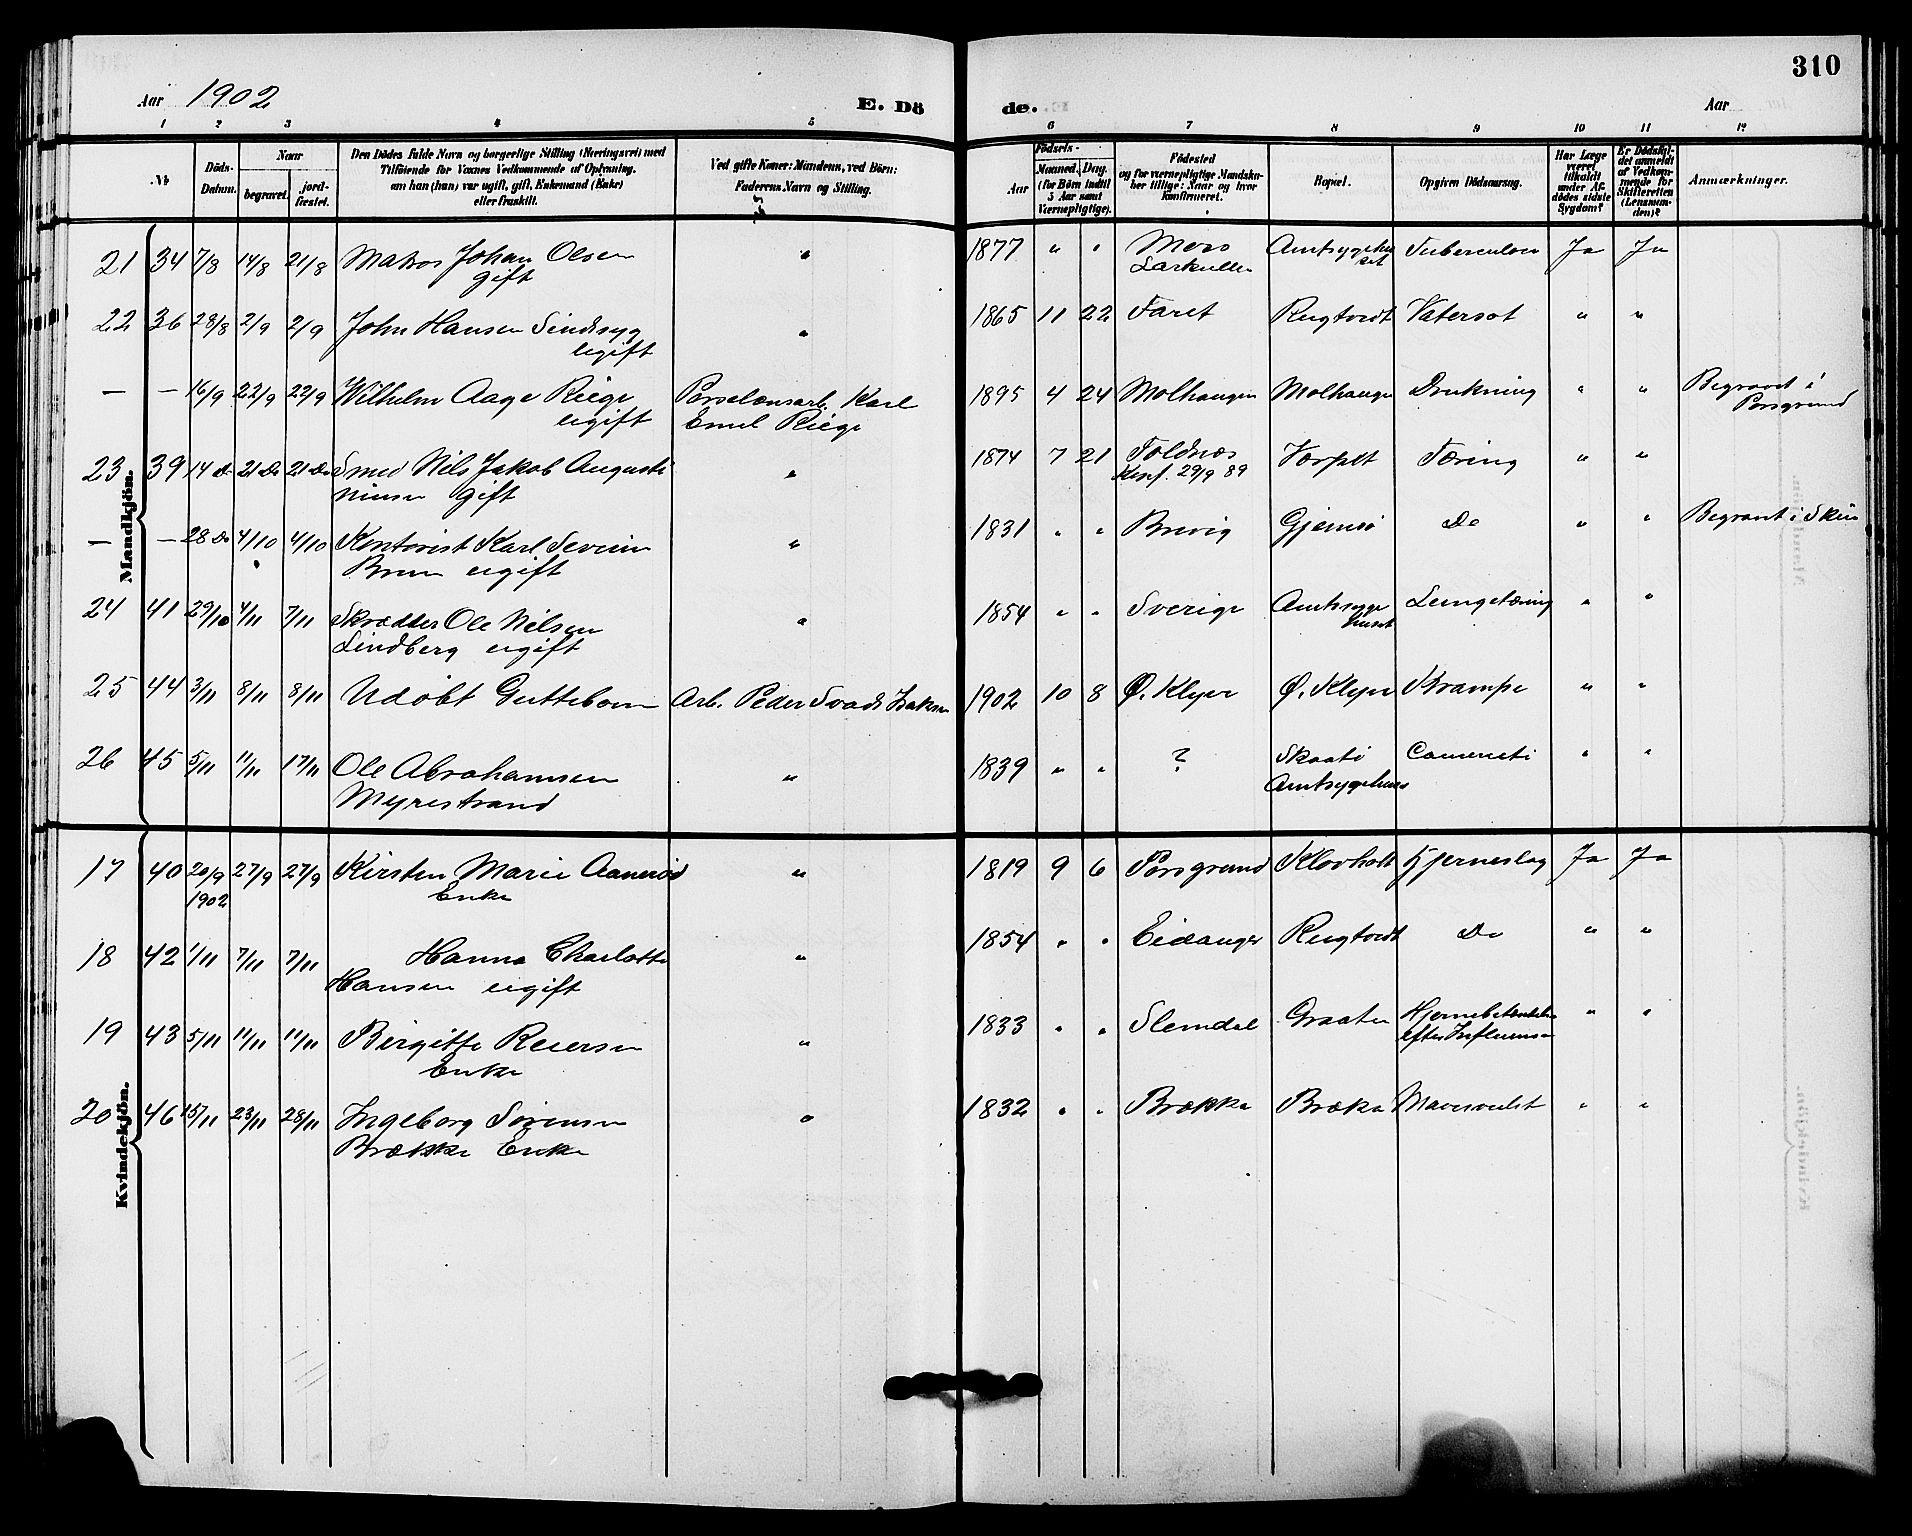 310
Aar 1902
E. Dö
de.
Aar
1 2 3 4 5 6 7 8 9 10 11 12
Nr
Döds-Datum.
Naar
begravet.
jord-fæstet.
Den Dödes fulde Navn og borgerlige Stilling (Næringsvei) med
Tilföiende for Voxnes Vedkommende af Oplysning,
om han (hun) var ugift, gift, Enkemand (Enke)
eller fraskilt.
Ved gifte Koner: Mandens, ved Börn:
Faderens Navn og Stilling.
Födsels-
Aar
Maaned, Dag.
(for Börn indtil
5 Aar samt
Værnepligtige).
Födested
og for værnepligtige Mandska-
ber tillige: Naar og hvor
konfirmeret.
Bopæl.
Opgiven Dödsaarsag.
Har Læge
været
tilkaldt
under Af-
dödes sidste
Sygdom?
Er Dödsfal-
det anmeldt
af Vedkom-
mende for
Skifteretten
(Lensman-
den)?
Anmærkninger.
Mandkjön.
21 34 7/8 14/8 21/8 Matros Johan Olsen " 1877 " " Moss Amtsygehu Tuberculose Ja Ja
gift Larkullen set
22 36 28/8 2/9 2/9 John Hansen Sindssyg " 1865 11 22 Faret Rugtvedt Vatersot " "
ugift
— — 16/9 22/9 22/9 Wilhelm Aage Riege Porselænsarb. Karl 1895 4 24 Molhaugen Molhaugen Drukning " " Begravet i
ugift Emil Riege Porsgrund
23 39 14 Do 21 Do 21 Do Smed Nils Jakob Augusti " 1874 7 21 Toldnæs Tæring " "
ninsen gift Konf. 29/9 89
— — 28 Do 4/10 4/10 Kontorist Karl Severin " 1831 " " Brevig Gjemsø Do " " Begravet i Skien
Bruun ugift
24 41 29/10 4/11 7/11 Skrædder Ole Nilsen " 1854 " " Sverige Amtssyge Lungetæring " "
Lindberg ugift huset
25 44 3/11 8/11 8/11 Udøbt Guttebarn Arb. Peder Isaksen 1902 10 8 Ø. Klyve Ø. Klyve Krampe " "
26 45 5/11 11/11 17/11 Ole Abrahamsen " 1839 " " ? Skaatø " "
Myrestrand Amtsygehuus
Kvindekjön.
17 40 20/9 27/9 27/9 Kirsten Marie Aanerød " 1819 9 6 Porsgrund Klovholt Hjerneslag Ja Ja
1902 Enke
18 42 1/11 7/11 7/11 Hanna Charlotte " 1854 " " Eidanger Rugtvedt Do " "
Hansen ugift
19 43 5/11 11/11 11/11 Birgitte Reiersen " 1833 " " Slemdal Graaten Hjernebetændelse " "
Enke efter Influensa
20 46 15/11 23/11 28/11 Ingeborg Sørensen " 1832 " " Brække Bræke Mavesvulst " "
Brække Enke